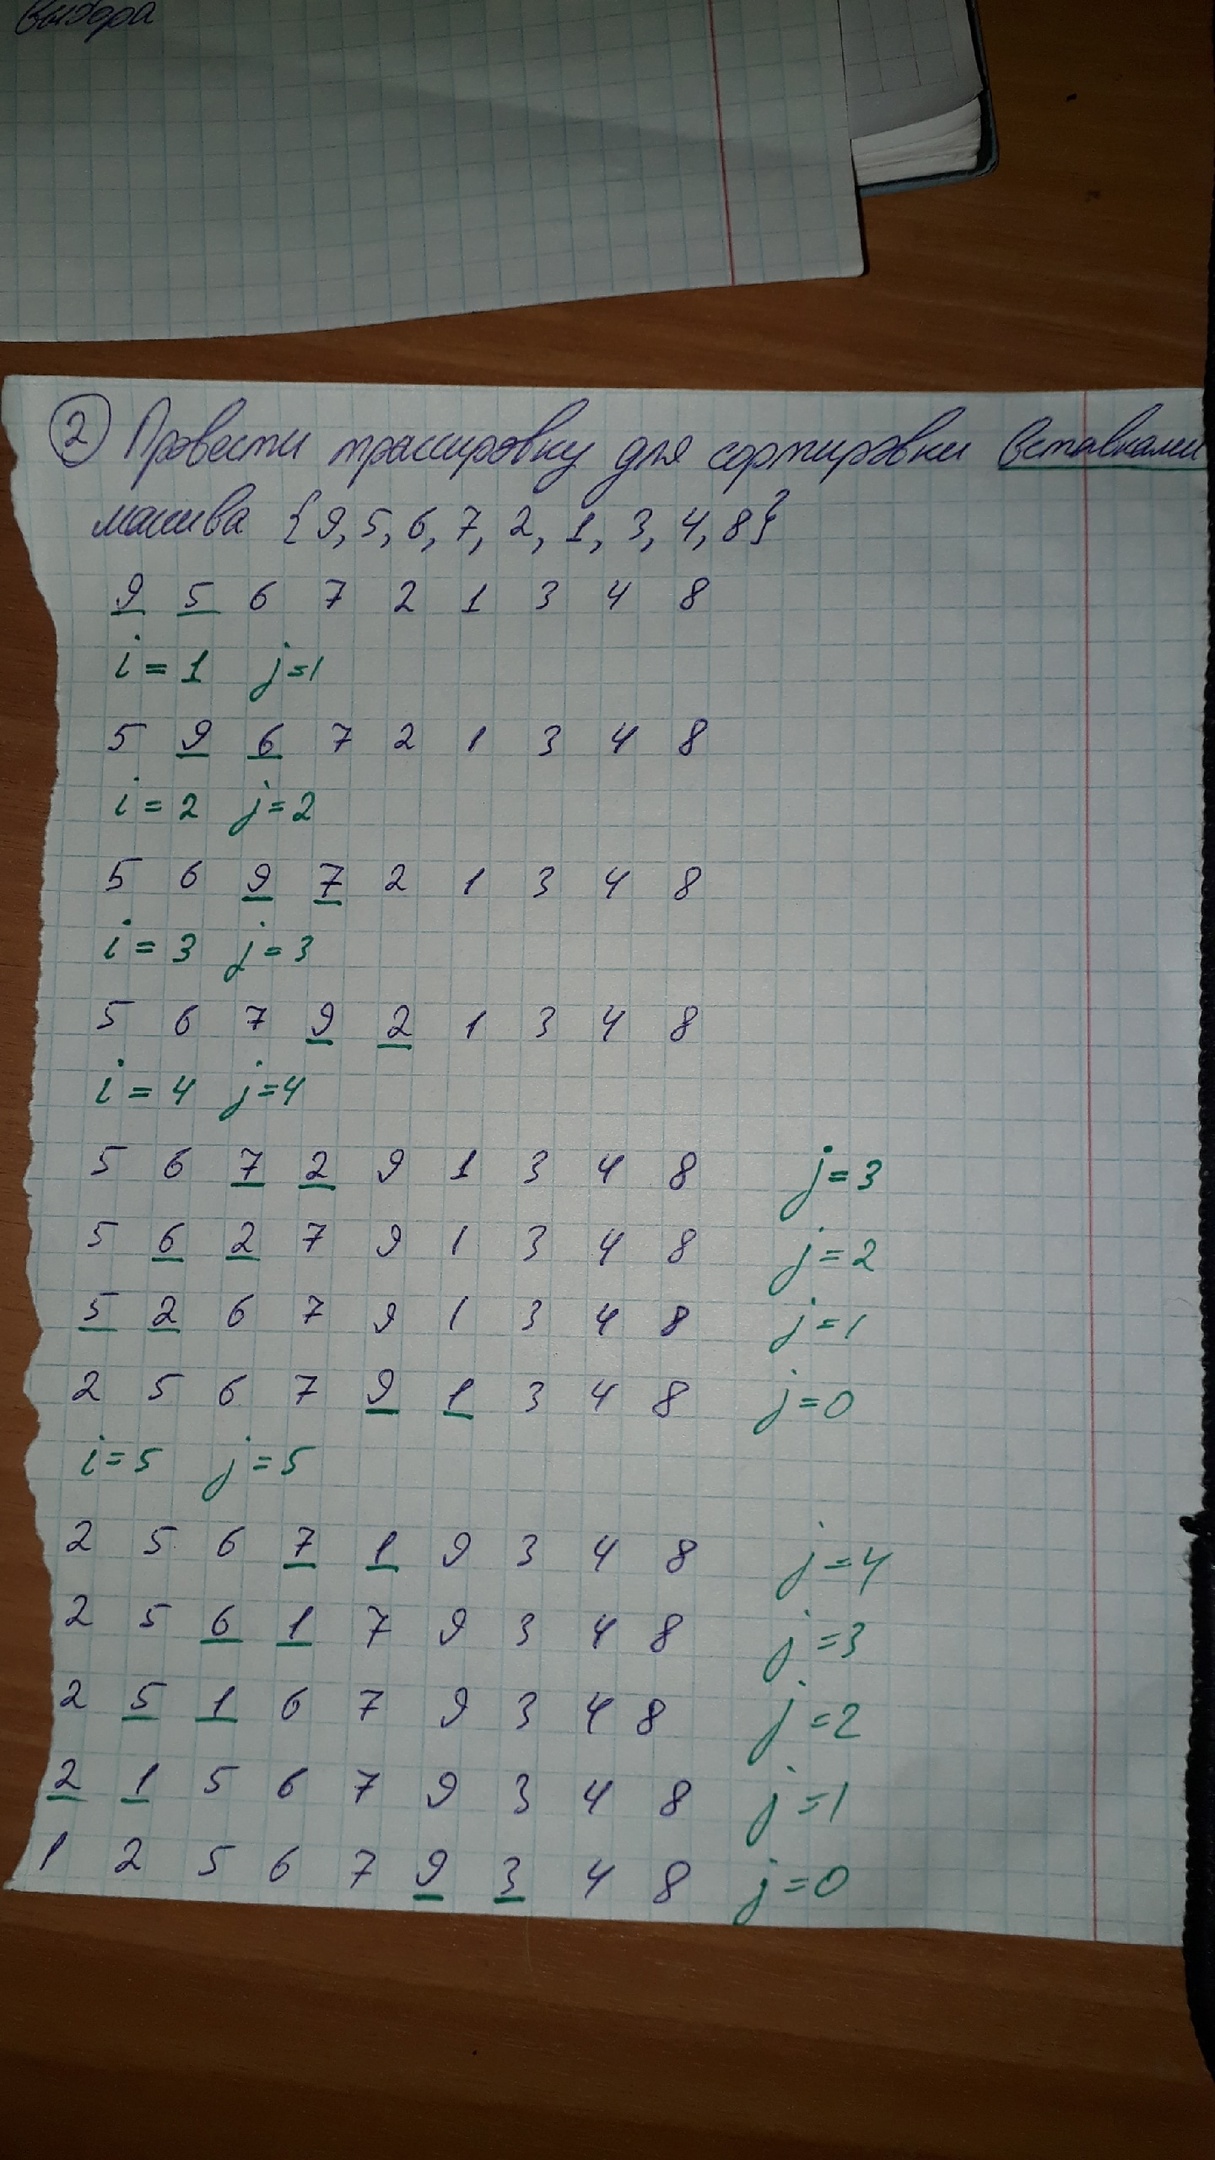 выбора
2 Провести трассировку для сортировки вставками
массива {9, 5, 6, 7, 2, 1, 3, 4, 8}
9 5 6 7 2 1 3 4 8
i = 1 j = 1
5 9 6 7 2 1 3 4 8
i = 2 j = 2
5 6 9 7 2 1 3 4 8
i = 3 j = 3
5 6 7 9 2 1 3 4 8
i = 4 j = 4
5 6 7 2 9 1 3 4 8 j = 3
5 6 2 7 9 1 3 4 8 j = 2
5 2 6 7 9 1 3 4 8 j = 1
2 5 6 7 9 1 3 4 8 j = 0
i = 5 j = 5
2 5 6 7 1 9 3 4 8 j = 4
2 5 6 1 7 9 3 4 8 j = 3
2 5 1 6 7 9 3 4 8 j = 2
2 1 5 6 7 9 3 4 8 j = 1
1 2 5 6 7 9 3 4 8 j = 0